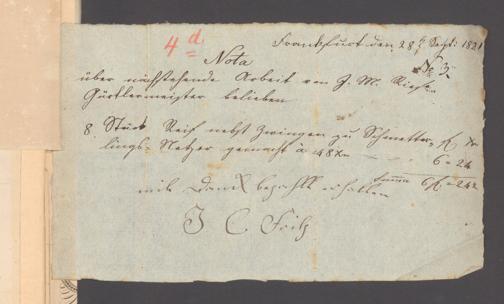 4 d
Frankfurt den 28 t Sept: 1821
Nota
No 3.
über nachstehende Arbeit von J. M.
Gürtlermeister belieben
8. Stück Reif nebst Zwingen zu Schmetter- f x
lings-Netzer gemacht à 48 x — 6 = 24
Summa 6 f = 24 x
mit Dank bezahlt erhalten
J C Fritz